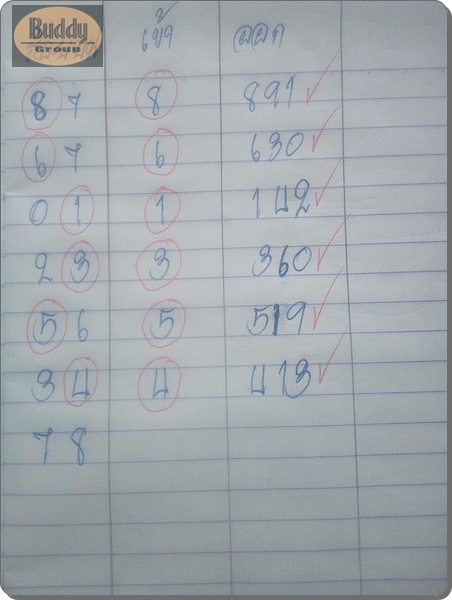 Buddy
Group
เข้า ออก
87 8 891
67 6 630
01 1 142
23 3 360
56 5 519
34 4 413
78